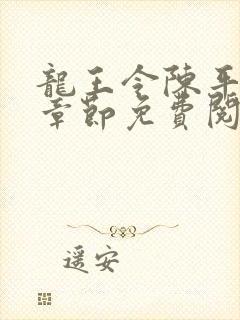 龍王令陳平
章節免費閱
遥安